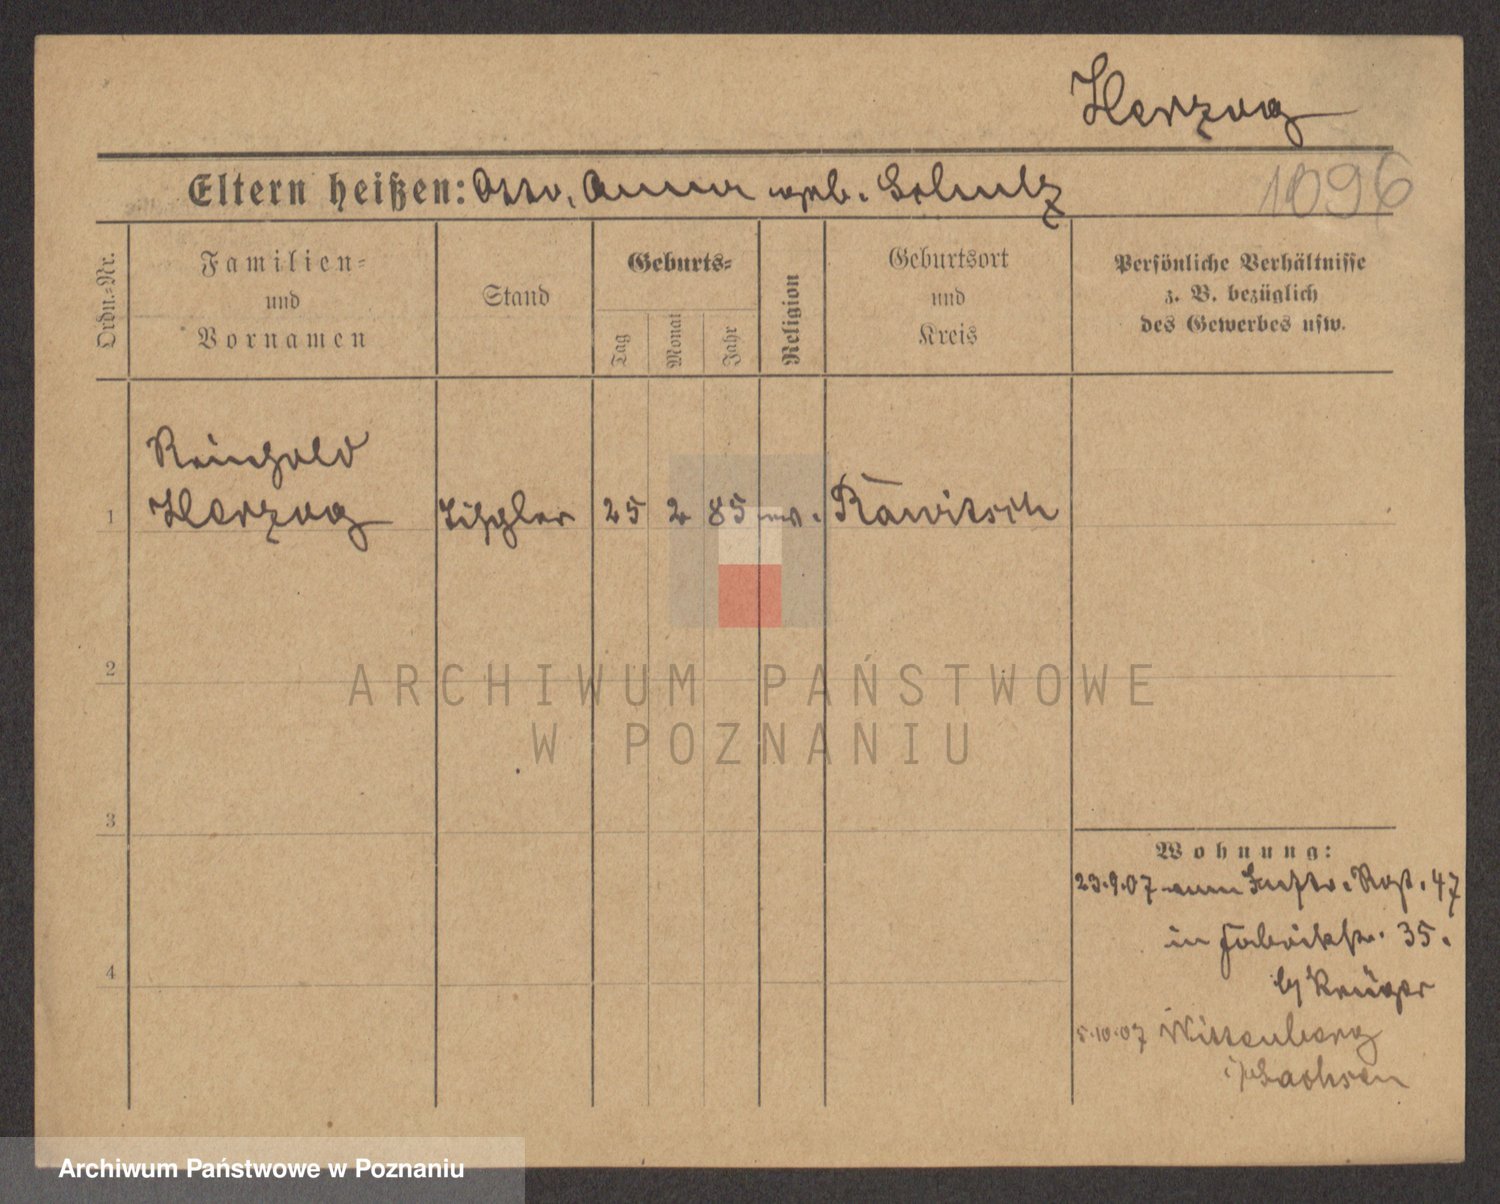 Herzog
Eltern heißen: Otto, Anna geb. Scholz
1096
Ordn.-Nr.
Familien-
und
Vornamen
Stand
Geburts-
Tag
Monat
Jahr
Religion
Geburtsort
und
Kreis
Persönliche Verhältnisse
z. B. bezüglich
des Gewerbes usw.
Reinhold
1 Herzog Tischler 25 2 85 ev. Rawitsch
2
3
4
Wohnung:
23.9.07 vom Inftr. Rgt. 47
in Fabrikstr. 35.
b/ Krüger
5.10.07 Wittenberg
i/Sachsen
ARCHIWUM PAŃSTWOWE
W POZNANIU
Archiwum Państwowe w Poznaniu